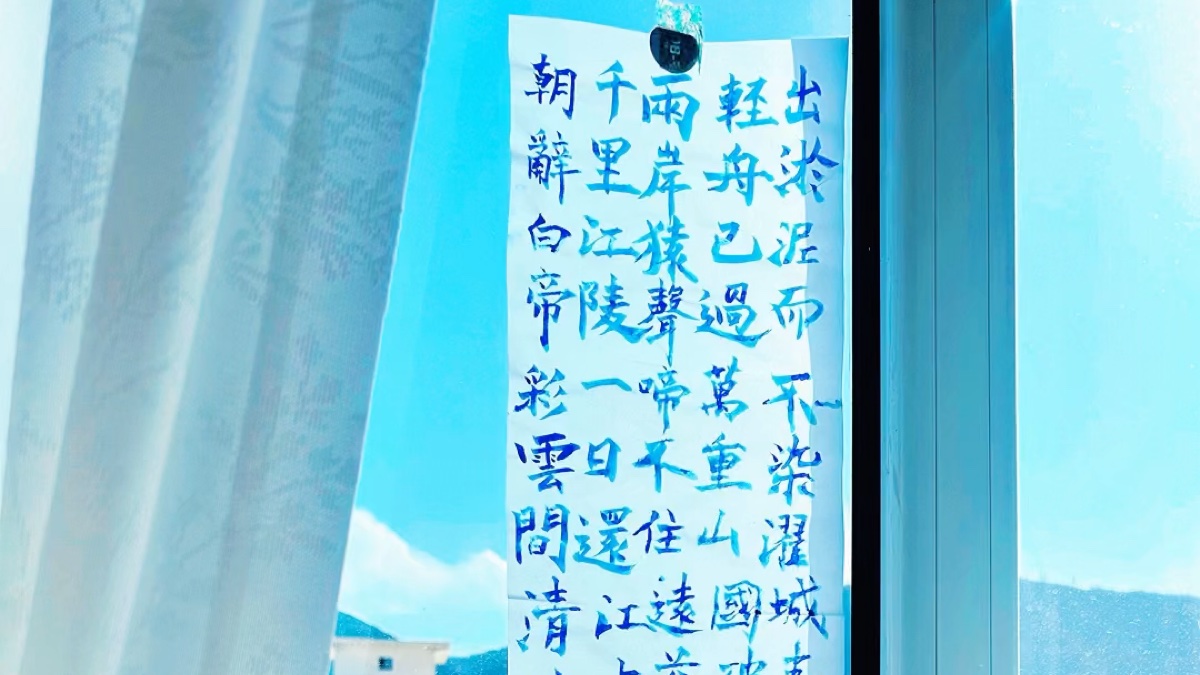 朝辭白帝彩雲間清
千里江陵一日還江
雨岸猿聲啼不住遠
軽舟已過萬重山國
出淤泥而不染濯城